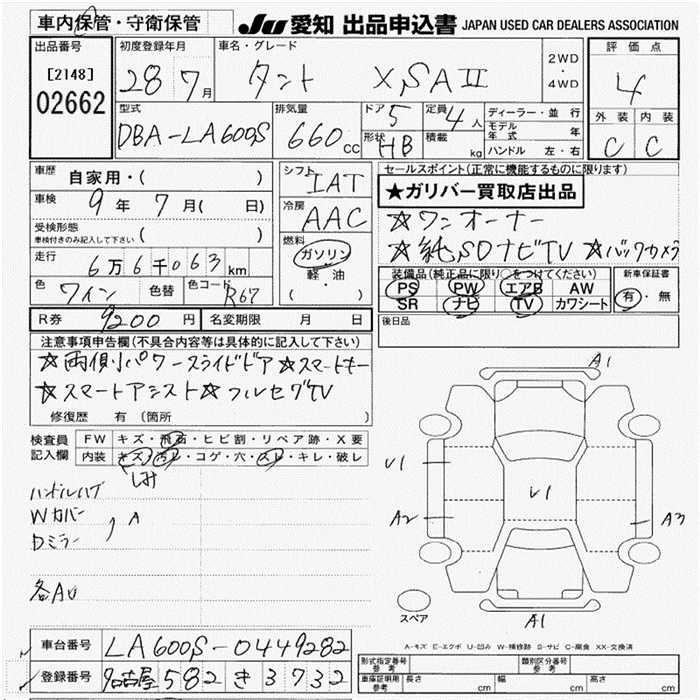 車内保管・守衛保管
JU 愛知 出品申込書 JAPAN USED CAR DEALERS ASSOCIATION
出品番号
[2148]
02662
初度登録年月
28 7月
車名・グレード
タント XSAII
2WD
・
4WD
評価点
4
型式
DBA-LA600S
排気量
660cc
ドア
5
定員
4人
形状
HB
積載
kg
ディーラー・並行
モデル年式 年
ハンドル 左・右
外装 内装
C C
車歴
自家用・( )
車検
9年 7月( 日)
受検形態
車検付きのみ記入して下さい ( )
走行
6万6千063km
色
ワイン
色替
色コード
R67
シフト
IAT
冷房
AAC
燃料
ガソリン
軽・油
( )
セールスポイント(正常に機能するものに限ります)
★ガリバー買取店出品
☆ワンオーナー
☆純SDナビTV ☆バックカメラ
装備品(純正品に限り○をつけてください)
PS PW エアB AW
SR ナビ TV カワシート
新車保証書
有・無
R券
9200円
名変期限 月 日
後日品
注意事項申告欄(不具合内容等は具体的に記入して下さい)
☆両側パワースライドドア ☆スマートキー
☆スマートアシスト☆フルセグTV
修復歴 有(箇所 )
検査員
記入欄
FW キズ・飛石・ヒビ割・リペア跡・X要
内装 キズ・汚レ・コゲ・穴・スレ・キレ・破レ
シミ
ハンドルハゲ
Wカバー
Dミラー
A
各AU
A1
U1
U1
A2
A3
A1
スペア
A-キズ E-エクボ U-凹み W-補修跡 S-サビ C-腐食 XX-交換済
車台番号
LA600S-0449282
登録番号
名古屋 582 き 3732
型式指定番号
参考
類別区分番号
参考
車庫証明用
参考
長さ cm
幅 cm
高さ cm